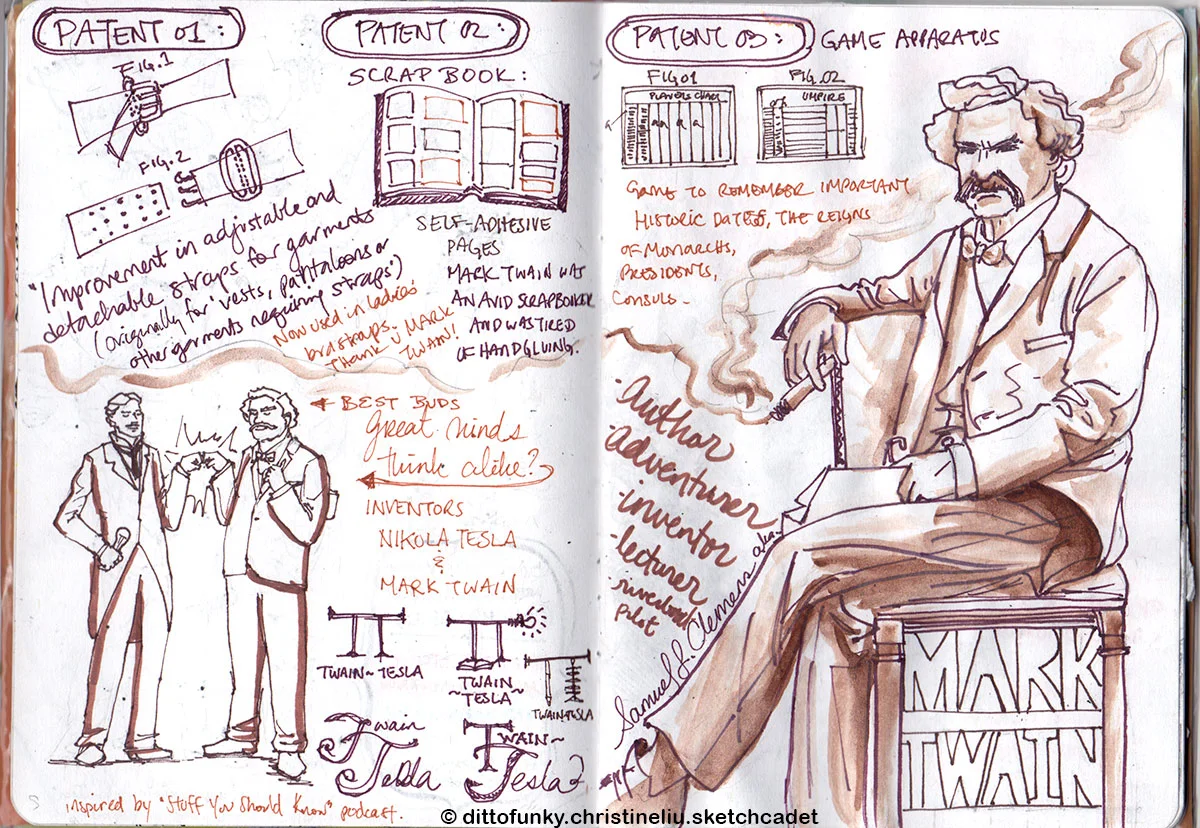 PATENT 01:
FIG.1
FIG.2
"Improvement in adjustable and
detachable straps for garments
(originally for "vests, pantaloons or
other garments requiring straps")
Now used in ladies'
bra straps.
Thank U, MARK
TWAIN!
PATENT 02:
SCRAP BOOK:
SELF-ADHESIVE
PAGES
MARK TWAIN WAS
AN AVID SCRAPBOOKER
AND WAS TIRED
OF HANDGLUING.
BEST BUDS
Great Minds
think alike?
INVENTORS
NIKOLA TESLA
&
MARK TWAIN
TWAIN~TESLA
TWAIN
~TESLA~
TWAIN~TESLA
Twain
Tesla
TWAIN~
Tesla?
inspired by "Stuff You Should Know" podcast.
PATENT 03:
GAME APPARATUS
FIG 01
PLAYERS CHART
FIG.02
UMPIRE
GAME TO REMEMBER IMPORTANT
HISTORIC DATES, THE REIGNS
OF MONARCHS,
PRESIDENTS,
CONSULS-
-author
-adventurer
-inventor
-lecturer
-riverboat
pilot
Samuel L. Clemens aka-
MARK
TWAIN
© dittofunky.christineliu.sketchcadet